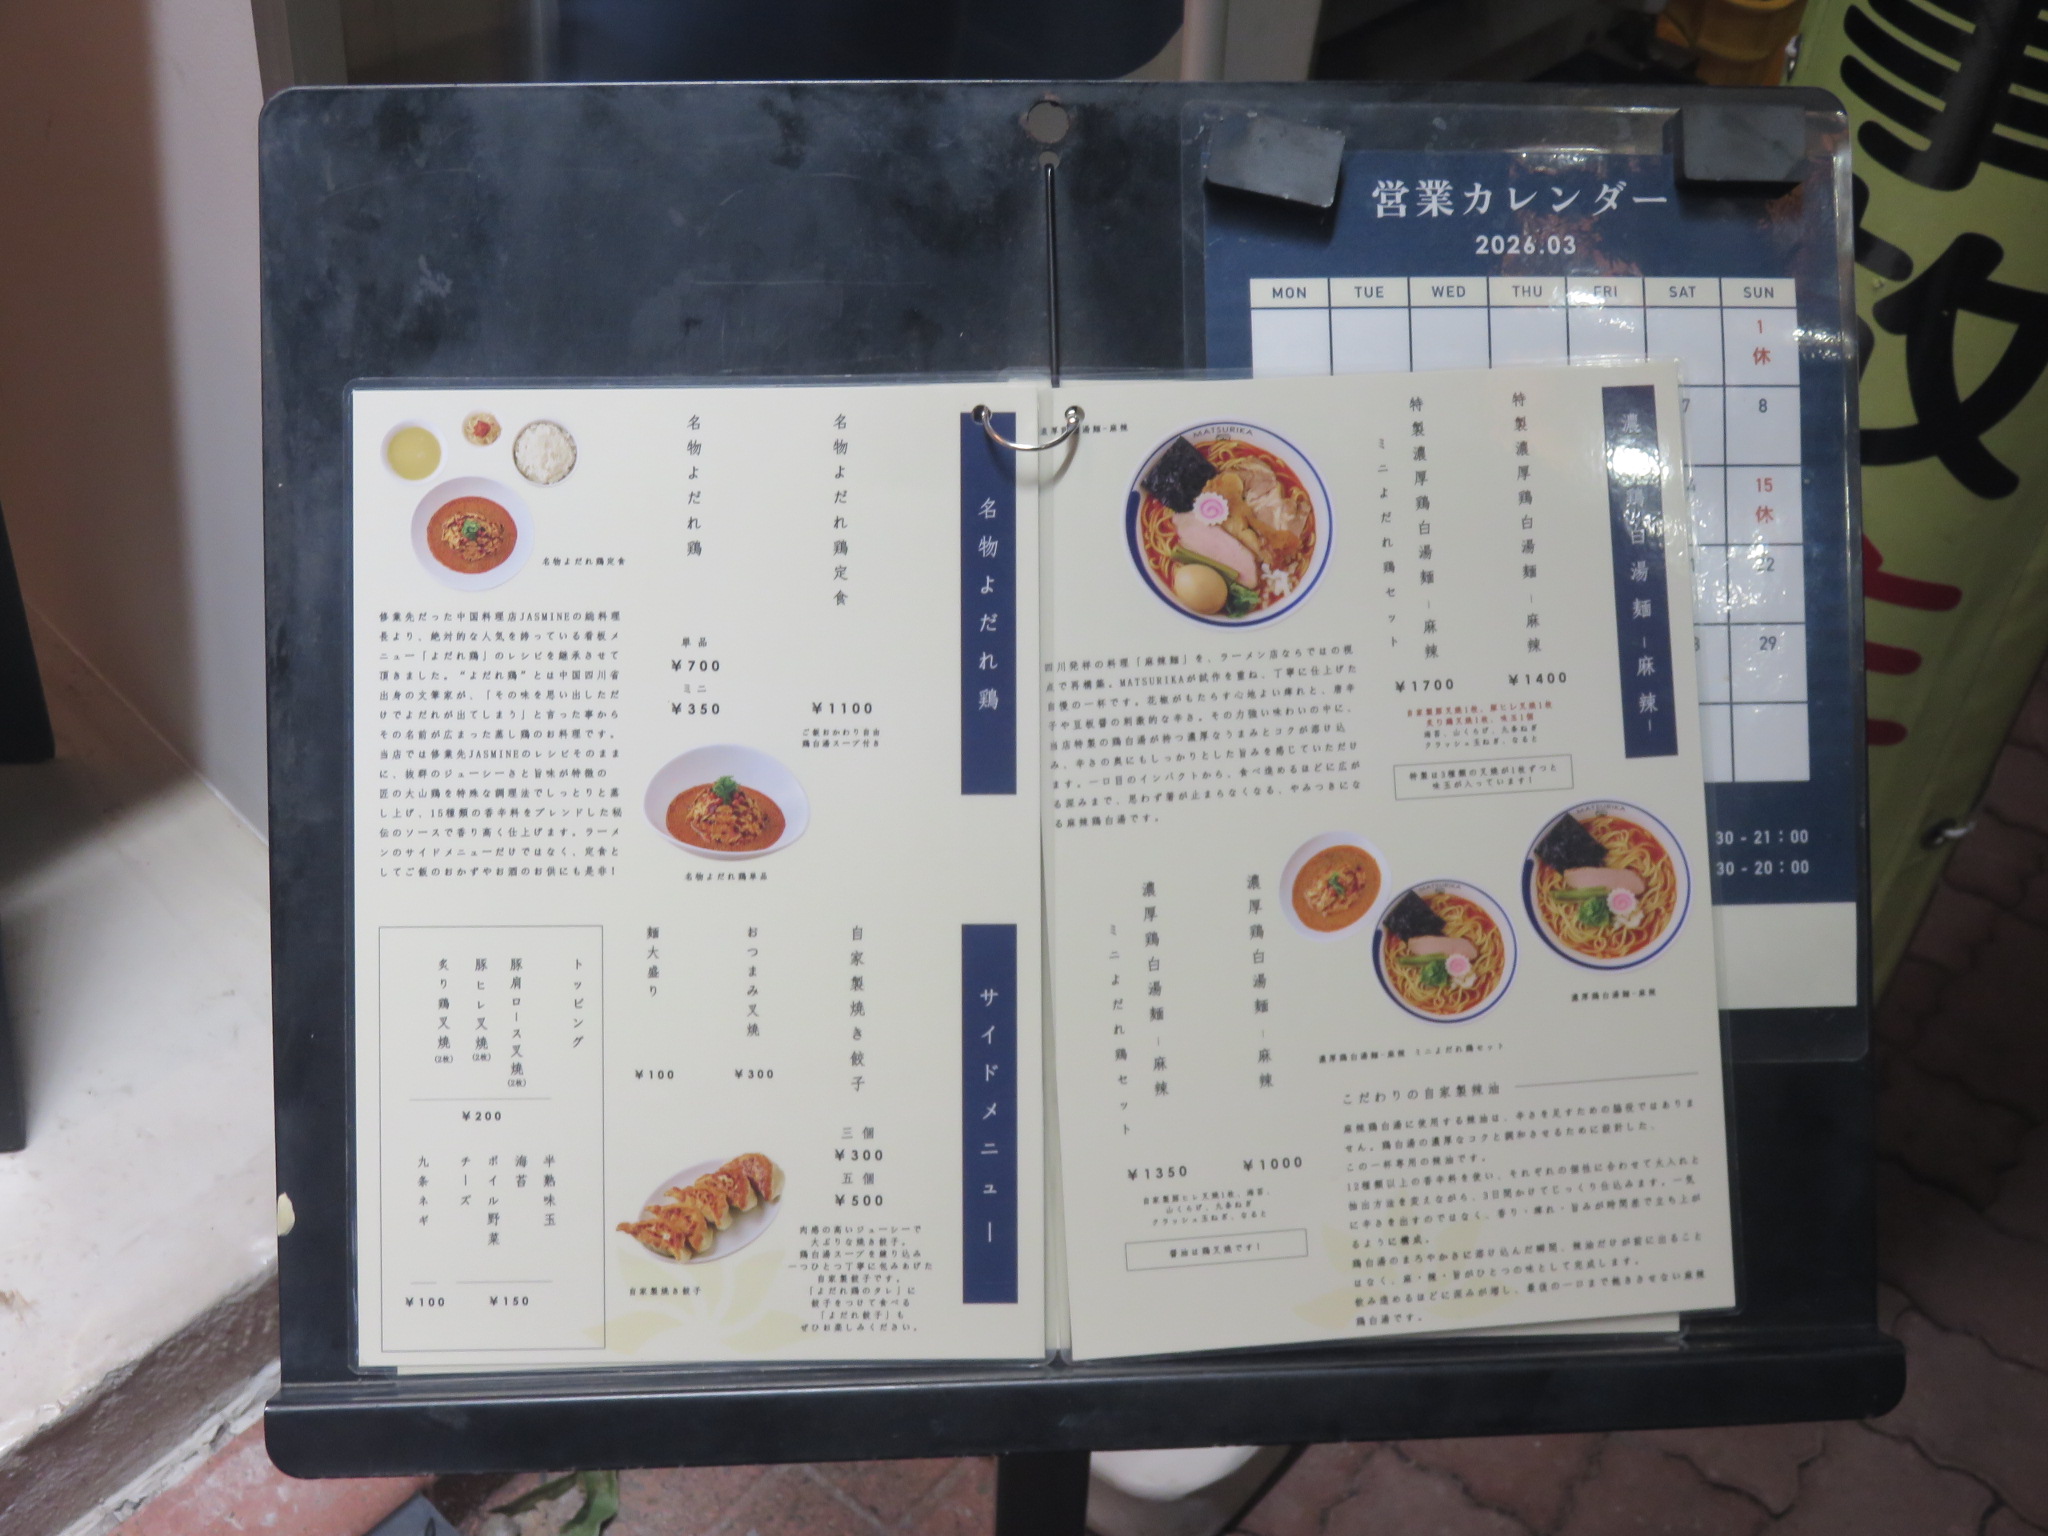 営業カレンダー
2026.03
MON TUE WED THU FRI SAT SUN
1
休
7 8
15
休
22
29
30 - 21：00
30 - 20：00
濃 鶏白湯麺 ー麻辣ー
特製濃厚鶏白湯麺 ー麻辣
¥1400
特製濃厚鶏白湯麺 ー麻辣
ミニよだれ鶏セット
¥1700
自家製豚叉焼1枚、豚ヒレ叉焼1枚
炙り鶏叉焼1枚、味玉1個
海苔、山くらげ、九条ねぎ
クラッシュ玉ねぎ、なると
特製は3種類の叉焼が1枚ずつと
味玉が入っています！
MATSURIKA
四川発祥の料理「麻辣麺」を、ラーメン店ならではの視
点で再構築。MATSURIKAが試作を重ね、丁寧に仕上げた
自慢の一杯です。花椒がもたらす心地よい痺れと、唐辛
子や豆板醤の刺激的な辛さ。その力強い味わいの中に、
当店特製の鶏白湯が持つ濃厚なうまみとコクが溶け込
み、辛さの奥にもしっかりとした旨みを感じていただけ
ます。一口目のインパクトから、食べ進めるほどに広が
る深みまで、思わず箸が止まらなくなる、やみつきにな
る麻辣鶏白湯です。
濃厚鶏白湯麺 ー麻辣
¥1000
濃厚鶏白湯麺 ー麻辣
ミニよだれ鶏セット
¥1350
自家製豚ヒレ叉焼1枚、海苔、
山くらげ、九条ねぎ
クラッシュ玉ねぎ、なると
醤油は鶏叉焼です！
MATSURIKA
MATSURIKA
濃厚鶏白湯麺-麻辣
濃厚鶏白湯麺-麻辣 ミニよだれ鶏セット
こだわりの自家製辣油
麻辣鶏白湯に使用する辣油は、辛さを足すための脇役ではありま
せん。鶏白湯の濃厚なコクと調和させるために設計した、
この一杯専用の辣油です。
12種類以上の香辛料を使い、それぞれの個性に合わせて火入れと
抽出方法を変えながら、3日間かけてじっくり仕込みます。一気
に辛さを出すのではなく、香り・痺れ・旨みが時間差で立ち上が
るように構成。
鶏白湯のまろやかさに溶け込んだ瞬間、辣油だけが前に出ること
はなく、麻・辣・旨がひとつの味として完成します。
飲み進めるほどに深みが増し、最後の一口まで飽きさせない麻辣
鶏白湯です。
名物よだれ鶏
名物よだれ鶏定食
¥1100
ご飯おかわり自由
鶏白湯スープ付き
名物よだれ鶏
単品
¥700
ミニ
¥350
名物よだれ鶏定食
名物よだれ鶏単品
修業先だった中国料理店JASMINEの総料理
長より、絶対的な人気を誇っている看板メ
ニュー「よだれ鶏」のレシピを継承させて
頂きました。“よだれ鶏”とは中国四川省
出身の文筆家が、「その味を思い出しただ
けでよだれが出てしまう」と言った事から
その名前が広まった蒸し鶏のお料理です。
当店では修業先JASMINEのレシピそのまま
に、抜群のジューシーさと旨味が特徴の
匠の大山鶏を特殊な調理法でしっとりと蒸
し上げ、15種類の香辛料をブレンドした秘
伝のソースで香り高く仕上げます。ラーメ
ンのサイドメニューだけではなく、定食と
してご飯のおかずやお酒のお供にも是非！
サイドメニュー
自家製焼き餃子
三個
¥300
五個
¥500
肉感の高いジューシーで
大ぶりな焼き餃子。
鶏白湯スープを練り込み
一つひとつ丁寧に包みあげた
自家製餃子です。
「よだれ鶏のタレ」に
餃子をつけて食べる
「よだれ餃子」も
ぜひお楽しみください。
おつまみ叉焼
¥300
麺大盛り
¥100
自家製焼き餃子
トッピング
豚肩ロース叉焼(2枚)
豚ヒレ叉焼(2枚)
炙り鶏叉焼(2枚)
¥200
半熟味玉
海苔
ボイル野菜
チーズ
¥150
九条ネギ
¥100